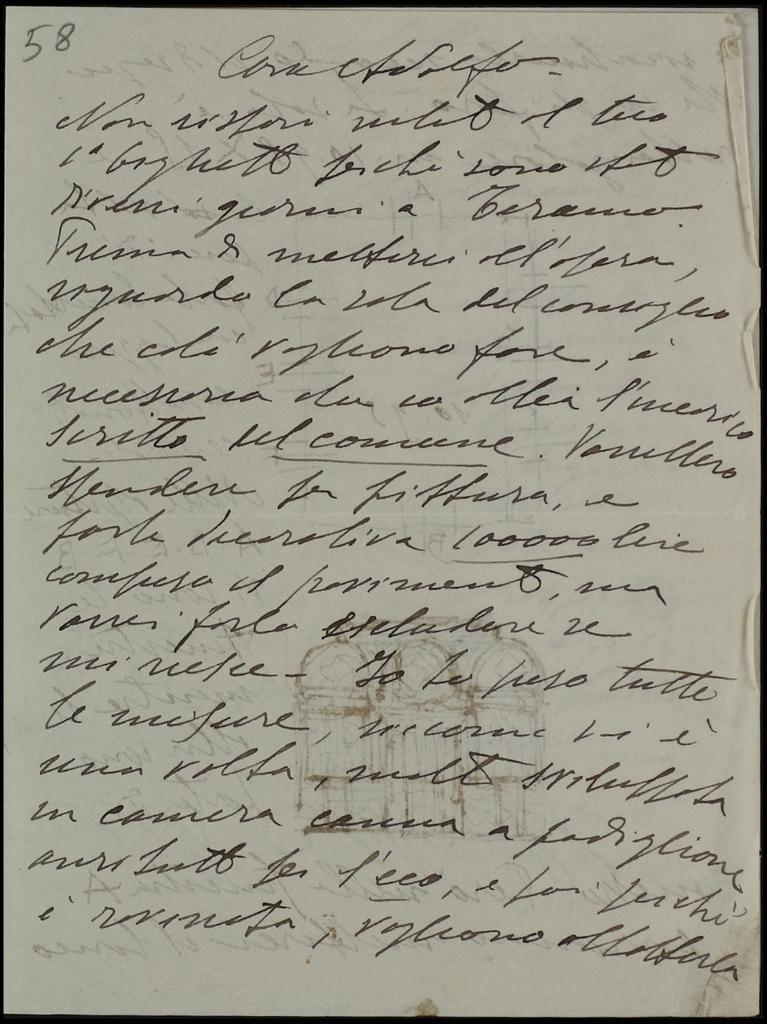 58
Caro Adolfo -
Non risposi subito al tuo
1º biglietto perchè sono stato
diversi giorni a Teramo.
Prima di mettersi all'opera,
riguardo la sala del consiglio
che colà vogliono fare, è
necessario che io abbia l'incarico
scritto del comune. Vorrebbero
spendere per pittura, e
parte decorativa 100000 lire
compreso il pavimento, ma
vorrei farlo escludere se
mi riesce - Io ho preso tutte
le misure, siccome vi è
una volta, molto sviluppata
in camera canna a padiglione
anzitutto per l'eco, e poi perchè
è rovinata, vogliono abbatterla